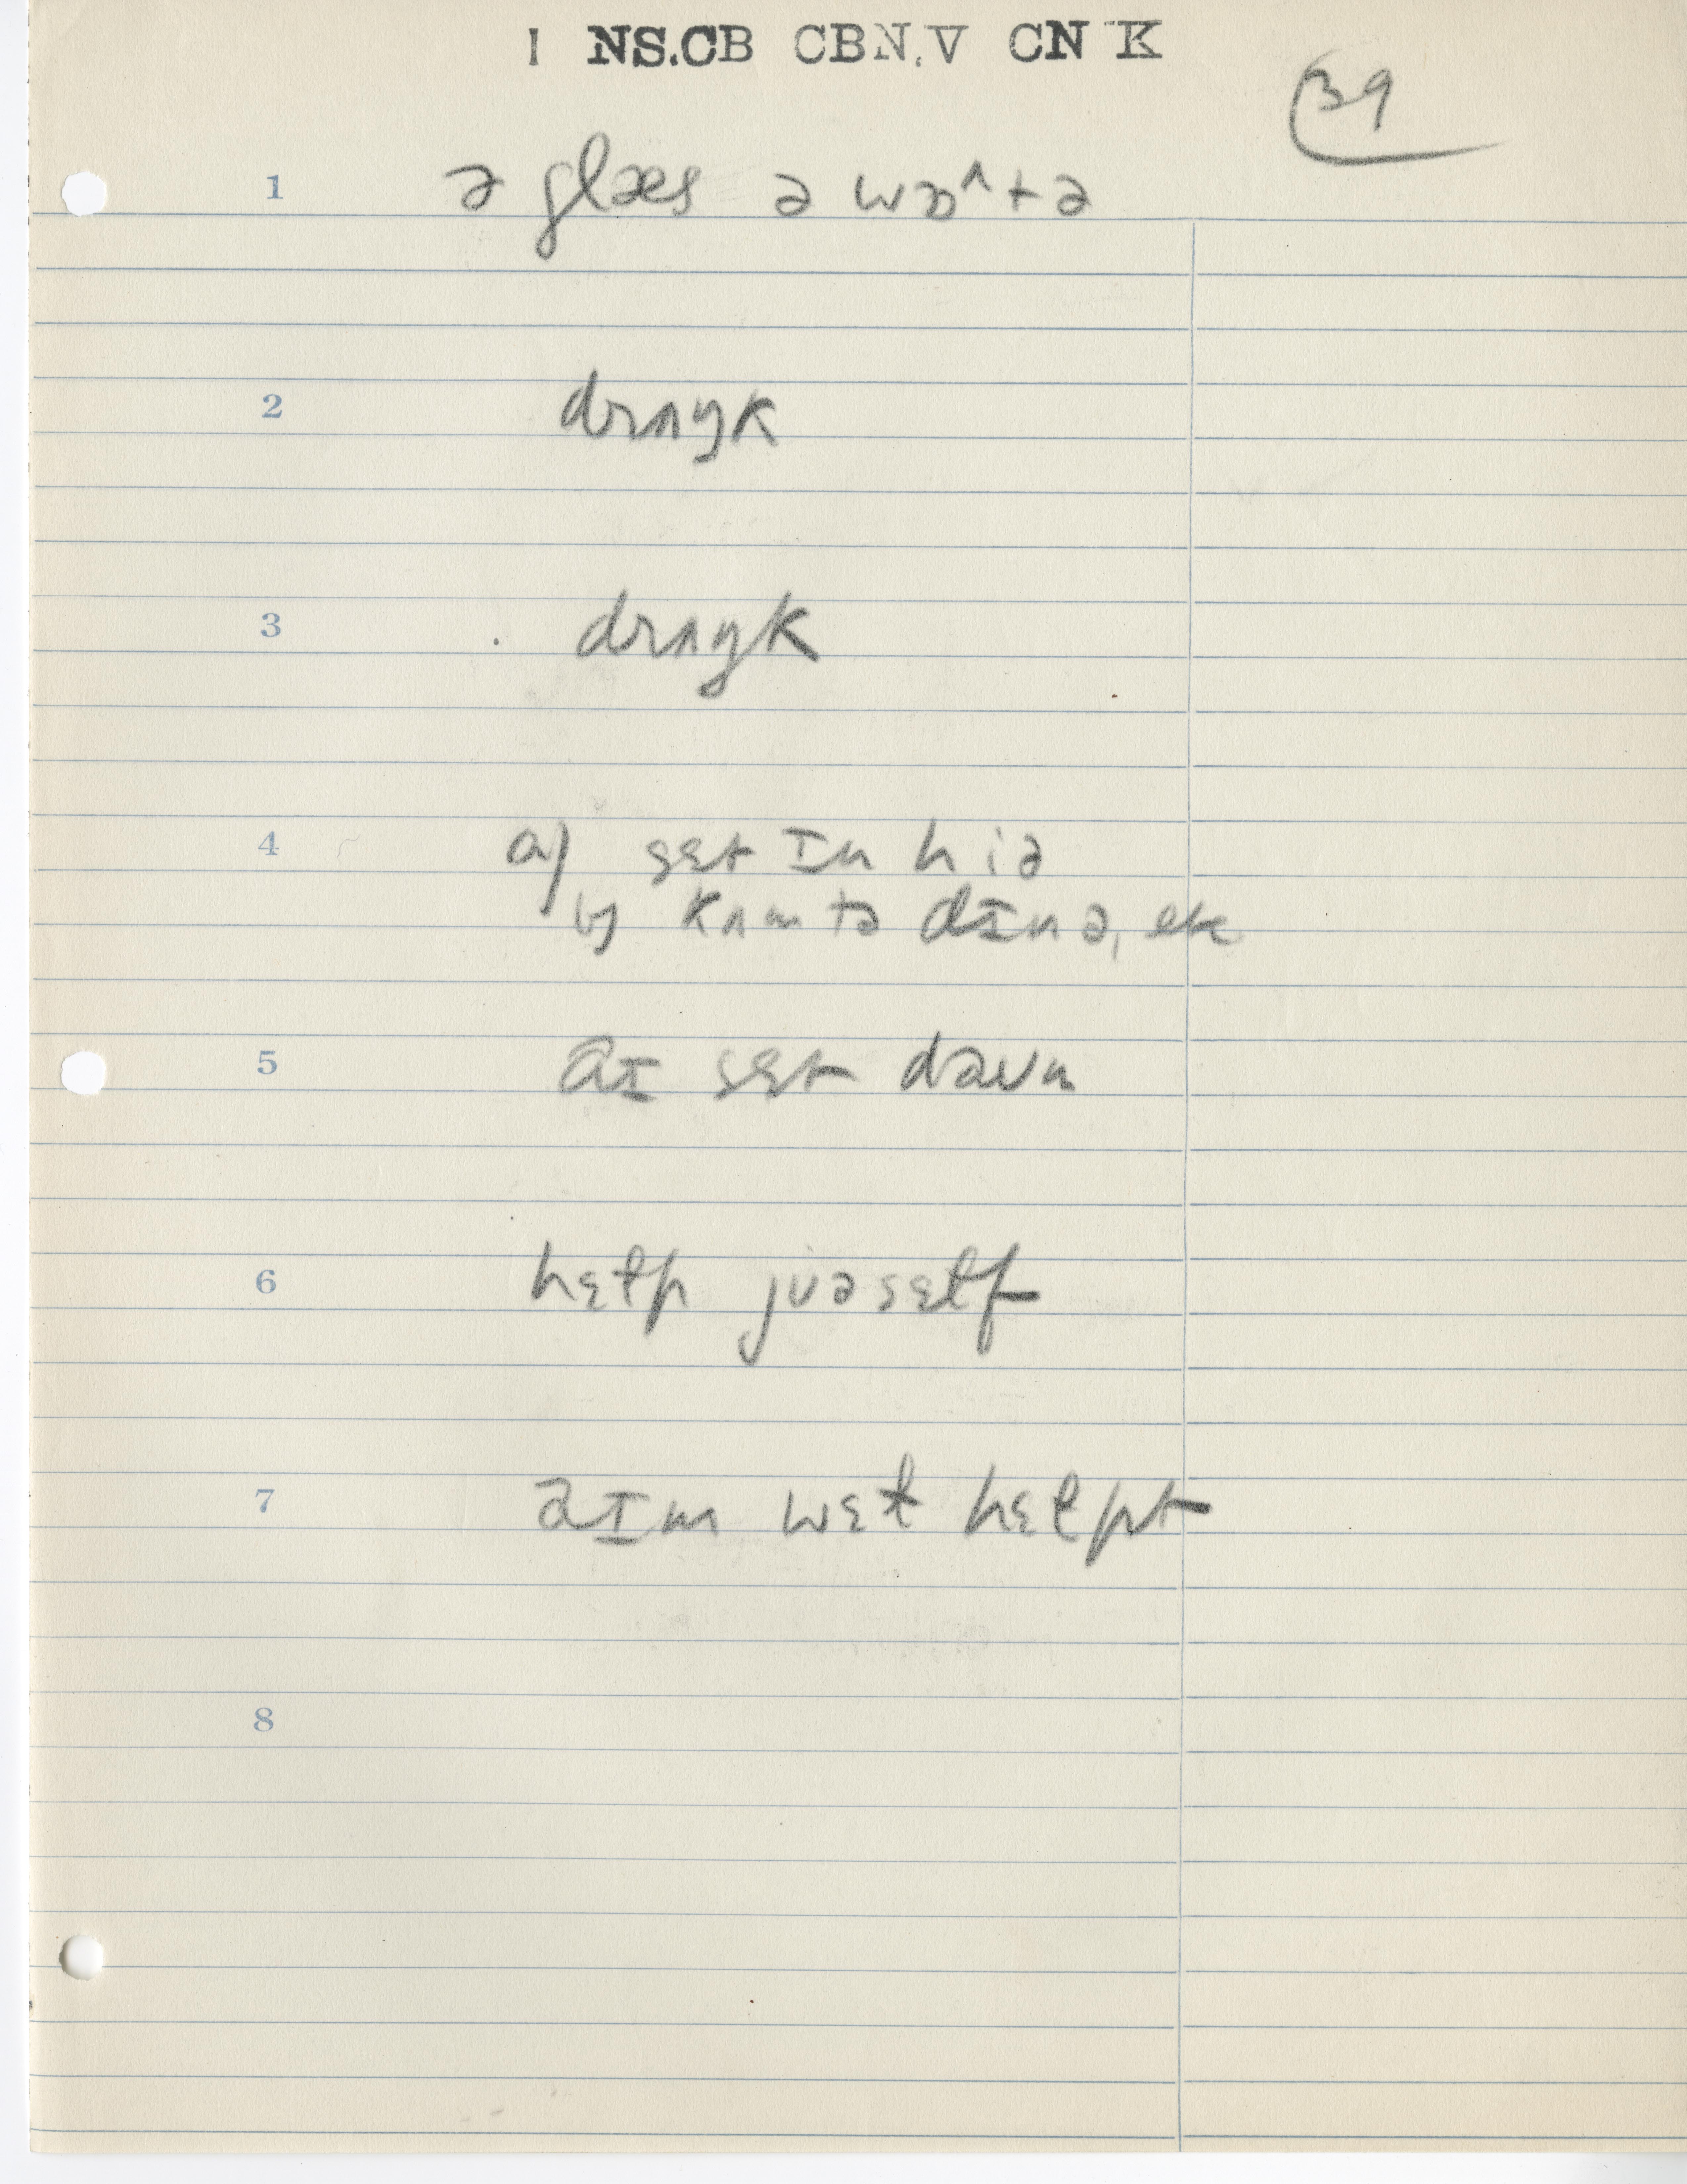 I NS.CB CBN.V CN K
39
1 ə glæs ə wɒ^tə
2 drʌŋk
3 drʌŋk
4 a) set ɪn hiə
b) kʌm tə dɪnə, etc
5 aɪ sɛt daʊn
6 hɛɫp jʊəsɛɫf
7 aɪm wɛɫ hɛɫpt
8